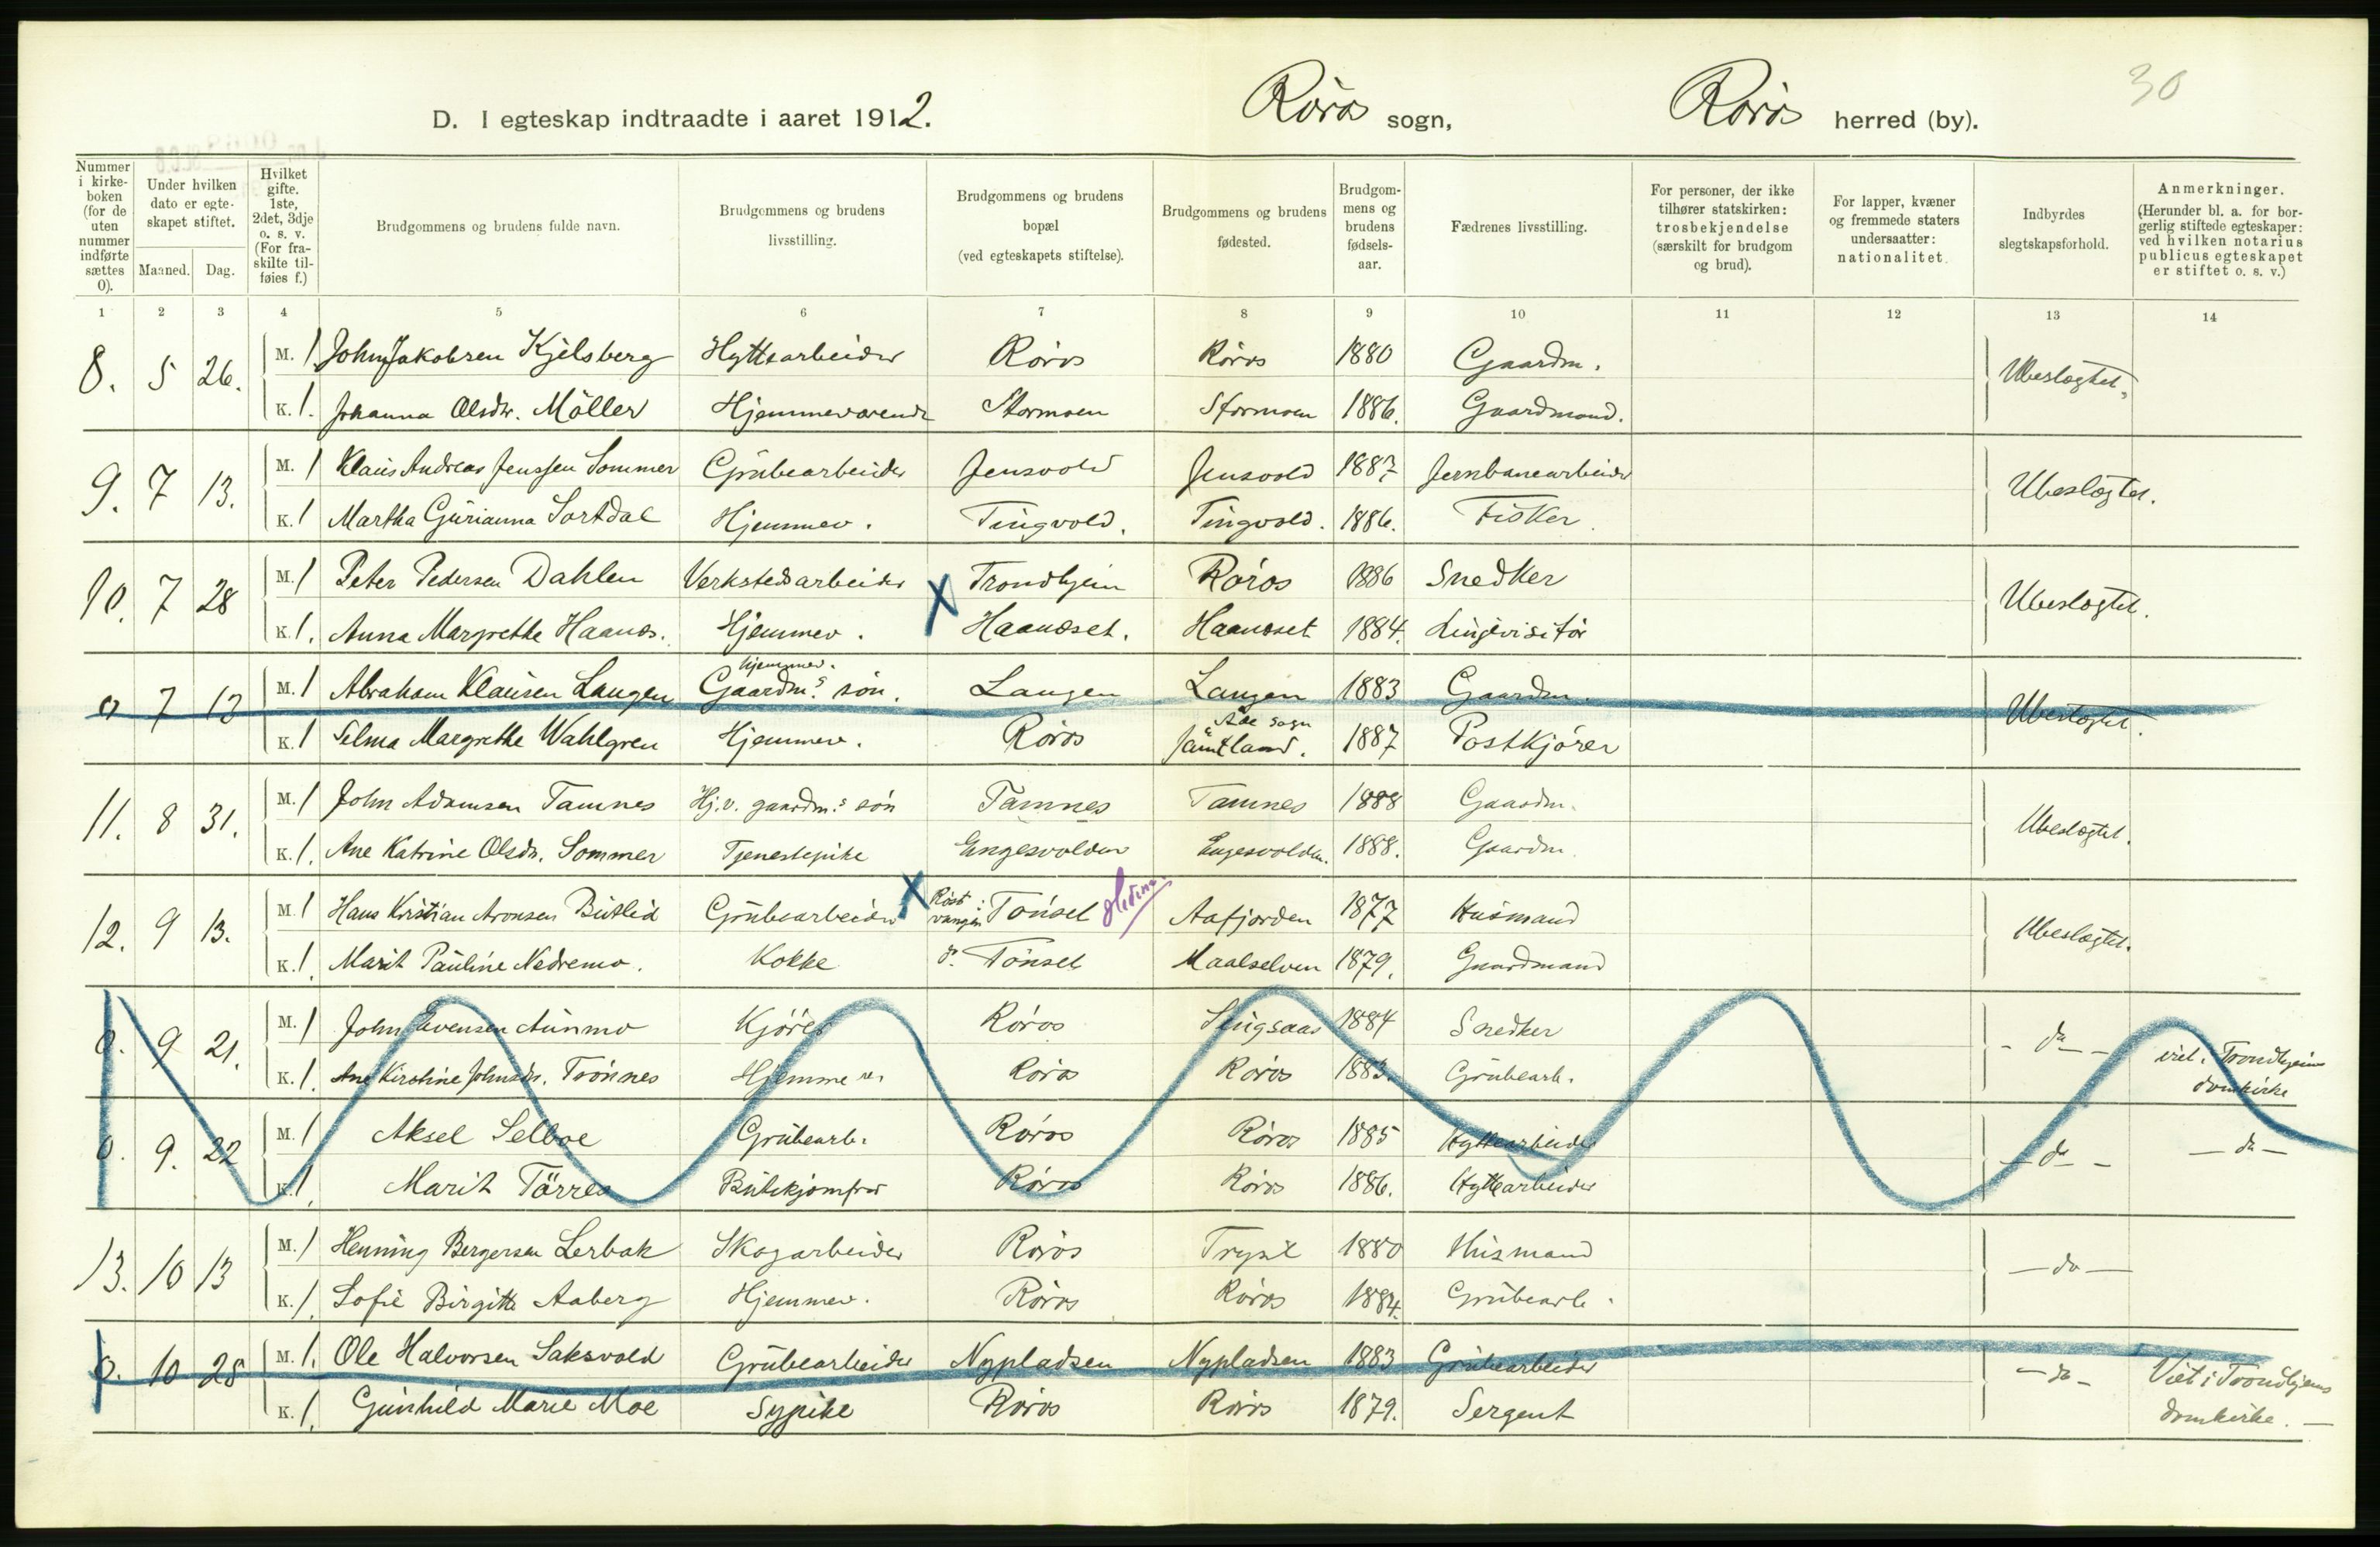 30
D. I egteskap indtraadte i aaret 1912. Røros sogn, Røros herred (by).
Nummer i kirke-boken (for de uten nummer indførte sættes 0). Under hvilken dato er egte-skapet stiftet. Maaned. Dag. Hvilket gifte. 1ste, 2det, 3dje o. s. v. (For fra-skilte til-føies f.) Brudgommens og brudens fulde navn. Brudgommens og brudens livsstilling. Brudgommens og brudens bopæl (ved egteskapets stiftelse). Brudgommens og brudens fødested. Brudgom-mens og brudens fødsels-aar. Fædrenes livsstilling. For personer, der ikke tilhører statskirken: trosbekjendelse (særskilt for brudgom og brud). For lapper, kvæner og fremmede staters undersaatter: nationalitet. Indbyrdes slegtskapsforhold. Anmerkninger. (Herunder bl. a. for bor-gerlig stiftede egteskaper: ved hvilken notarius publicus egteskapet er stiftet o. s. v.)
1 2 3 4 5 6 7 8 9 10 11 12 13 14
8. 5 26. M. 1 John Jakobsen Kjelsberg Hyttearbeider Røros Røros 1880 Gaardm. Ubeslægtet.
K. 1. Johanna Olsdtr. Möller Hjemmeværende Stormoen Stormoen 1886. Gaardmand.
9. 7 13. M. 1 Klaus Andreas Jenssen Sommer Grubearbeider Jensvold Jensvold 1887 Jernbanearbeider Ubeslægtet.
K. 1 Martha Gurianna Sortdal Hjemmev. Tingvold. Tingvold. 1886. Fisker.
10. 7 28 M. 1 Peter Pedersen Dahlen Verkstedsarbeider X Trondhjem Røros 1886 Snedker Ubeslægtet.
K. 1. Anna Margrethe Haanæs. Hjemmev. Haanæset. Haanæset 1884.
hjemmev.
0 7 13 M. 1 Abraham Klausen Langen Gaardm.s søn. Langen Langen 1883 Gaardm. Ubeslægtet.
K. 1 Selma Margrethe Wahlgren Hjemmev. Røros sogn Jämtland. 1887 Postkjører
11. 8 31. M. 1 John Adamsen Tamnes Hj.v. gaardm.s søn Tamnes Tamnes 1888 Gaardm. Ubeslægtet.
K. 1. Ane Katrine Olsdtr. Sommer Tjenestepike Engesvolden Engesvolden. 1888. Gaardm.
12. 9 13. M. 1 Hans Kristian Aronsen Butlid Grubearbeider X Røstvangen i Tønset Aafjorden 1877 Husmand Ubeslægtet.
K. 1. Marit Pauline Nedremo. Kokke do. Tønset Maalselven 1879. Gaardmand
0. 9 21. M. 1 John Evensen Aunmo Kjører Røros Singsaas 1884 Snedker - do - viet i Trondhjems domkirke
K. 1. Ane Kirstine Johnsdtr. Trønnes Hjemmev. Røros Røros 1883. Grubearb.
0. 9. 22 M. 1 Aksel Selboe Grubearb. Røros Røros 1885 Hyttearbeider - do - - do -
K. 1. Marit Törres Butikjomfru Røros Røros 1886. Hyttearbeider
13. 10 13 M. 1 Henning Bergersen Lerbak Skogarbeider Røros Trysil 1880 Husmand - do -
K. 1. Sofie Birgitte Aaberg Hjemmev. Røros Røros 1884. Grubearb.
0. 10 28 M. 1. Ole Halvorsen Saksvold Grubearbeider Nypladsen Nypladsen 1883 Grubearbeider - do - Viet i Trondhjems domkirke. -
K. 1. Gunhild Marie Moe Sypike Røros Røros 1879. Sergent